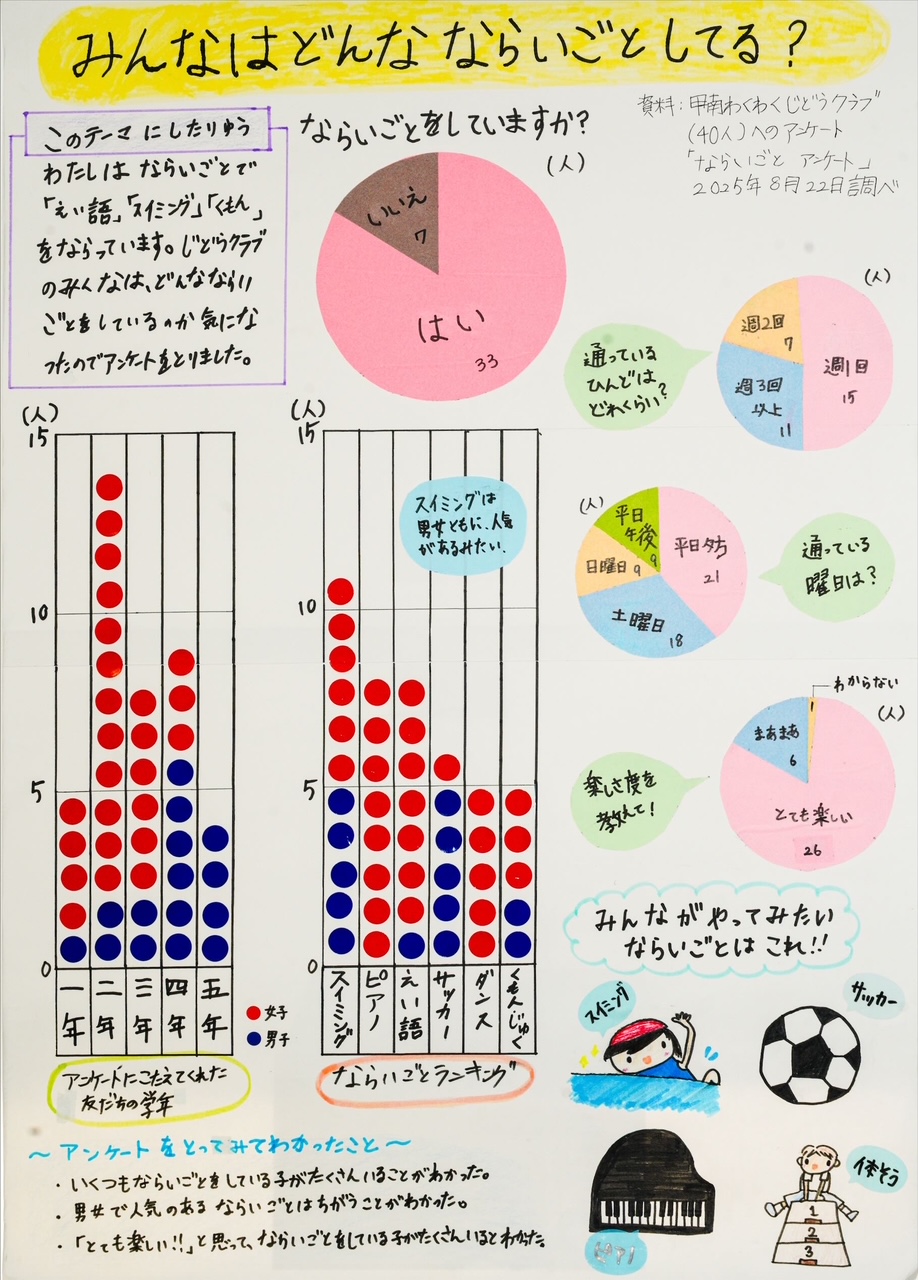 みんなはどんなならいごとしてる?
資料:甲南わくわくじどうクラブ
(40人)へのアンケート
「ならいごと アンケート」
2025年8月22日調べ
このテーマにしたりゆう
わたしは ならいごとで
「えい語」「スイミング」「くもん」
をならっています。じどうクラブ
のみんなは、どんなならい
ごとをしているのか気にな
ったのでアンケートをとりました。
ならいごとをしていますか?
(人)
いいえ
7
はい
33
通っている
ひんどは
どれくらい?
(人)
週2回
7
週1回
15
週3回
以上
11
(人)
15
10
5
0
一年
二年
三年
四年
五年
女子
男子
アンケートにこたえてくれた
友だちの学年
(人)
15
10
5
0
スイミングは
男女ともに、人気
があるみたい。
スイミング
ピアノ
えい語
サッカー
ダンス
くもんじゅく
ならいごとランキング
(人)
平日
午後
9
平日夕方
21
日曜日 9
土曜日
18
通っている
曜日は?
わからない
1
(人)
まあまあ
6
とても楽しい
26
楽しさ度を
教えて!
みんながやってみたい
ならいごとは これ!!
スイミング
サッカー
ピアノ
体そう
1
2
3
〜アンケートをとってみてわかったこと〜
・いくつもならいごとをしている子がたくさんいることがわかった。
・男女で人気のある ならいごとはちがうことがわかった。
・「とても楽しい!!」と思って、ならいごとをしている子がたくさんいるとわかった。